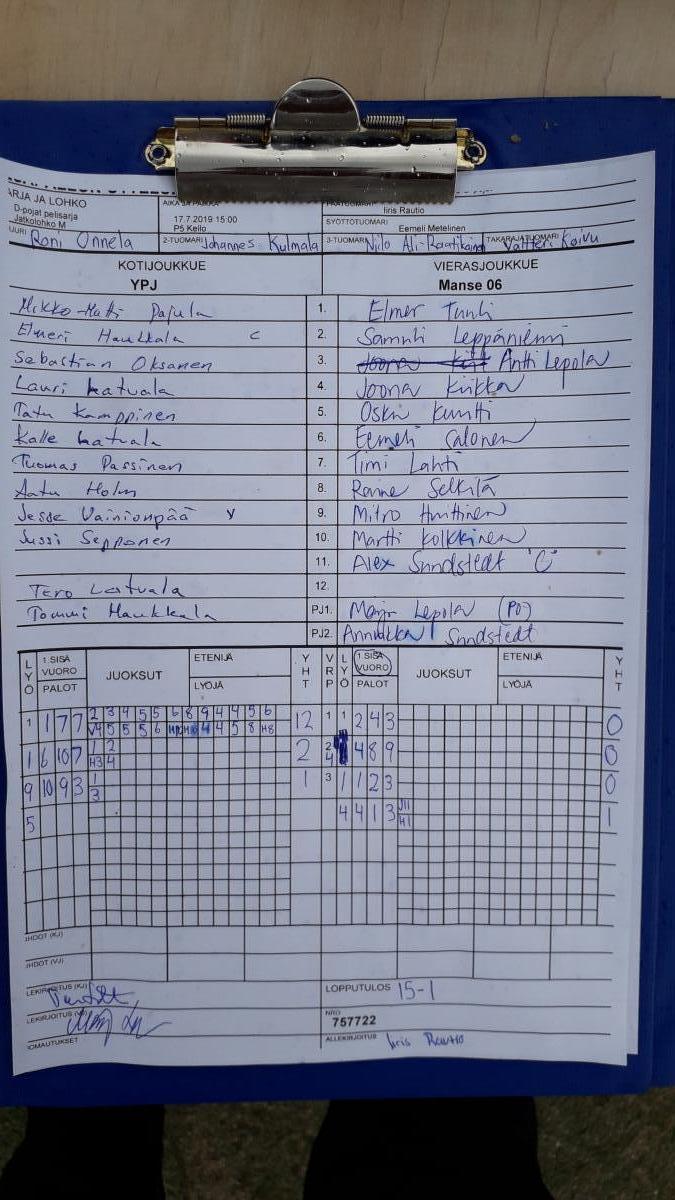 ARJA JA LOHKO
D-pojat pelisarja
Jatkolohko M
AIKA JA PAIKKA
17.7.2019 15:00
P5 Kello
Iiris Rautio
SYÖTTÖTUOMARI
Eemeli Metelinen
Roni Onnela 2-TUOMARI Johannes Kulmala 3-TUOMARI Niilo TAKARAJATUOMARI Valtteri Koivu
KOTIJOUKKUE VIERASJOUKKUE
YPJ Manse 06
Mikko-Matti Pajula 1. Elmer Tunli
Elmeri Haukkala C 2. Samuli Leppäniemi
Sebastian Oksanen 3. Antti Lepola
Lauri Latvala 4. Joona Kirkka
Tatu Kamppinen 5. Oskn Kuntti
Kalle Latvala 6. Eemeli Salonen
Tuomas Passinen 7. Timi Lahti
Aatu Holm 8. Raine Selkilä
Jesse Vainionpää V 9. Mitro Huttinen
Jussi Sepponen 10. Martti Kolkkinen
11. Alex Sundstedt "C"
Tero Latvala 12.
Tommi Haukkala PJ1. Marjn Lepola (PO)
PJ2. Annukka Sundstedt
LYÖ 1.SISÄ VUORO PALOT JUOKSUT ETENIJÄ LYÖJÄ YHT VRP LYÖ 1.SISÄ VUORO PALOT JUOKSUT ETENIJÄ LYÖJÄ YHT
1 1 7 7 2 3 4 5 5 6 8 9 4 4 5 6 12 1 1 2 4 3 0
V4 5 5 5 6 4 4 5 8 H8
1 6 10 7 1 2 2 2 4 8 9 0
H3 4 4
9 10 9 3 1 1 3 1 1 2 3 0
3
5 4 4 1 3 J11 1
H1
LOPPUTULOS 15-1
NRO
757722
ALLEKIRJOITUS Iiris Rautio